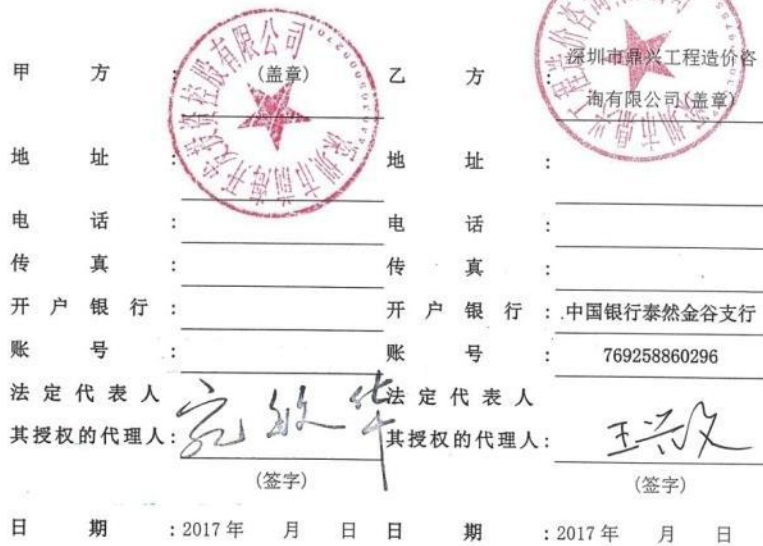 深圳市前海开发投资控股有限公司
甲 方 : (盖章)
地 址 :
电 话 :
传 真 :
开 户 银 行 :
账 号 :
法 定 代 表 人
其授权的代理人:
(签字)
日 期 : 2017 年 月 日
乙 方 : 深圳市鼎兴工程造价咨
询有限公司(盖章)
地 址 :
电 话 :
传 真 :
开 户 银 行 : 中国银行泰然金谷支行
账 号 : 769258860296
法 定 代 表 人
其授权的代理人: 王兴文
(签字)
日 期 : 2017 年 月 日